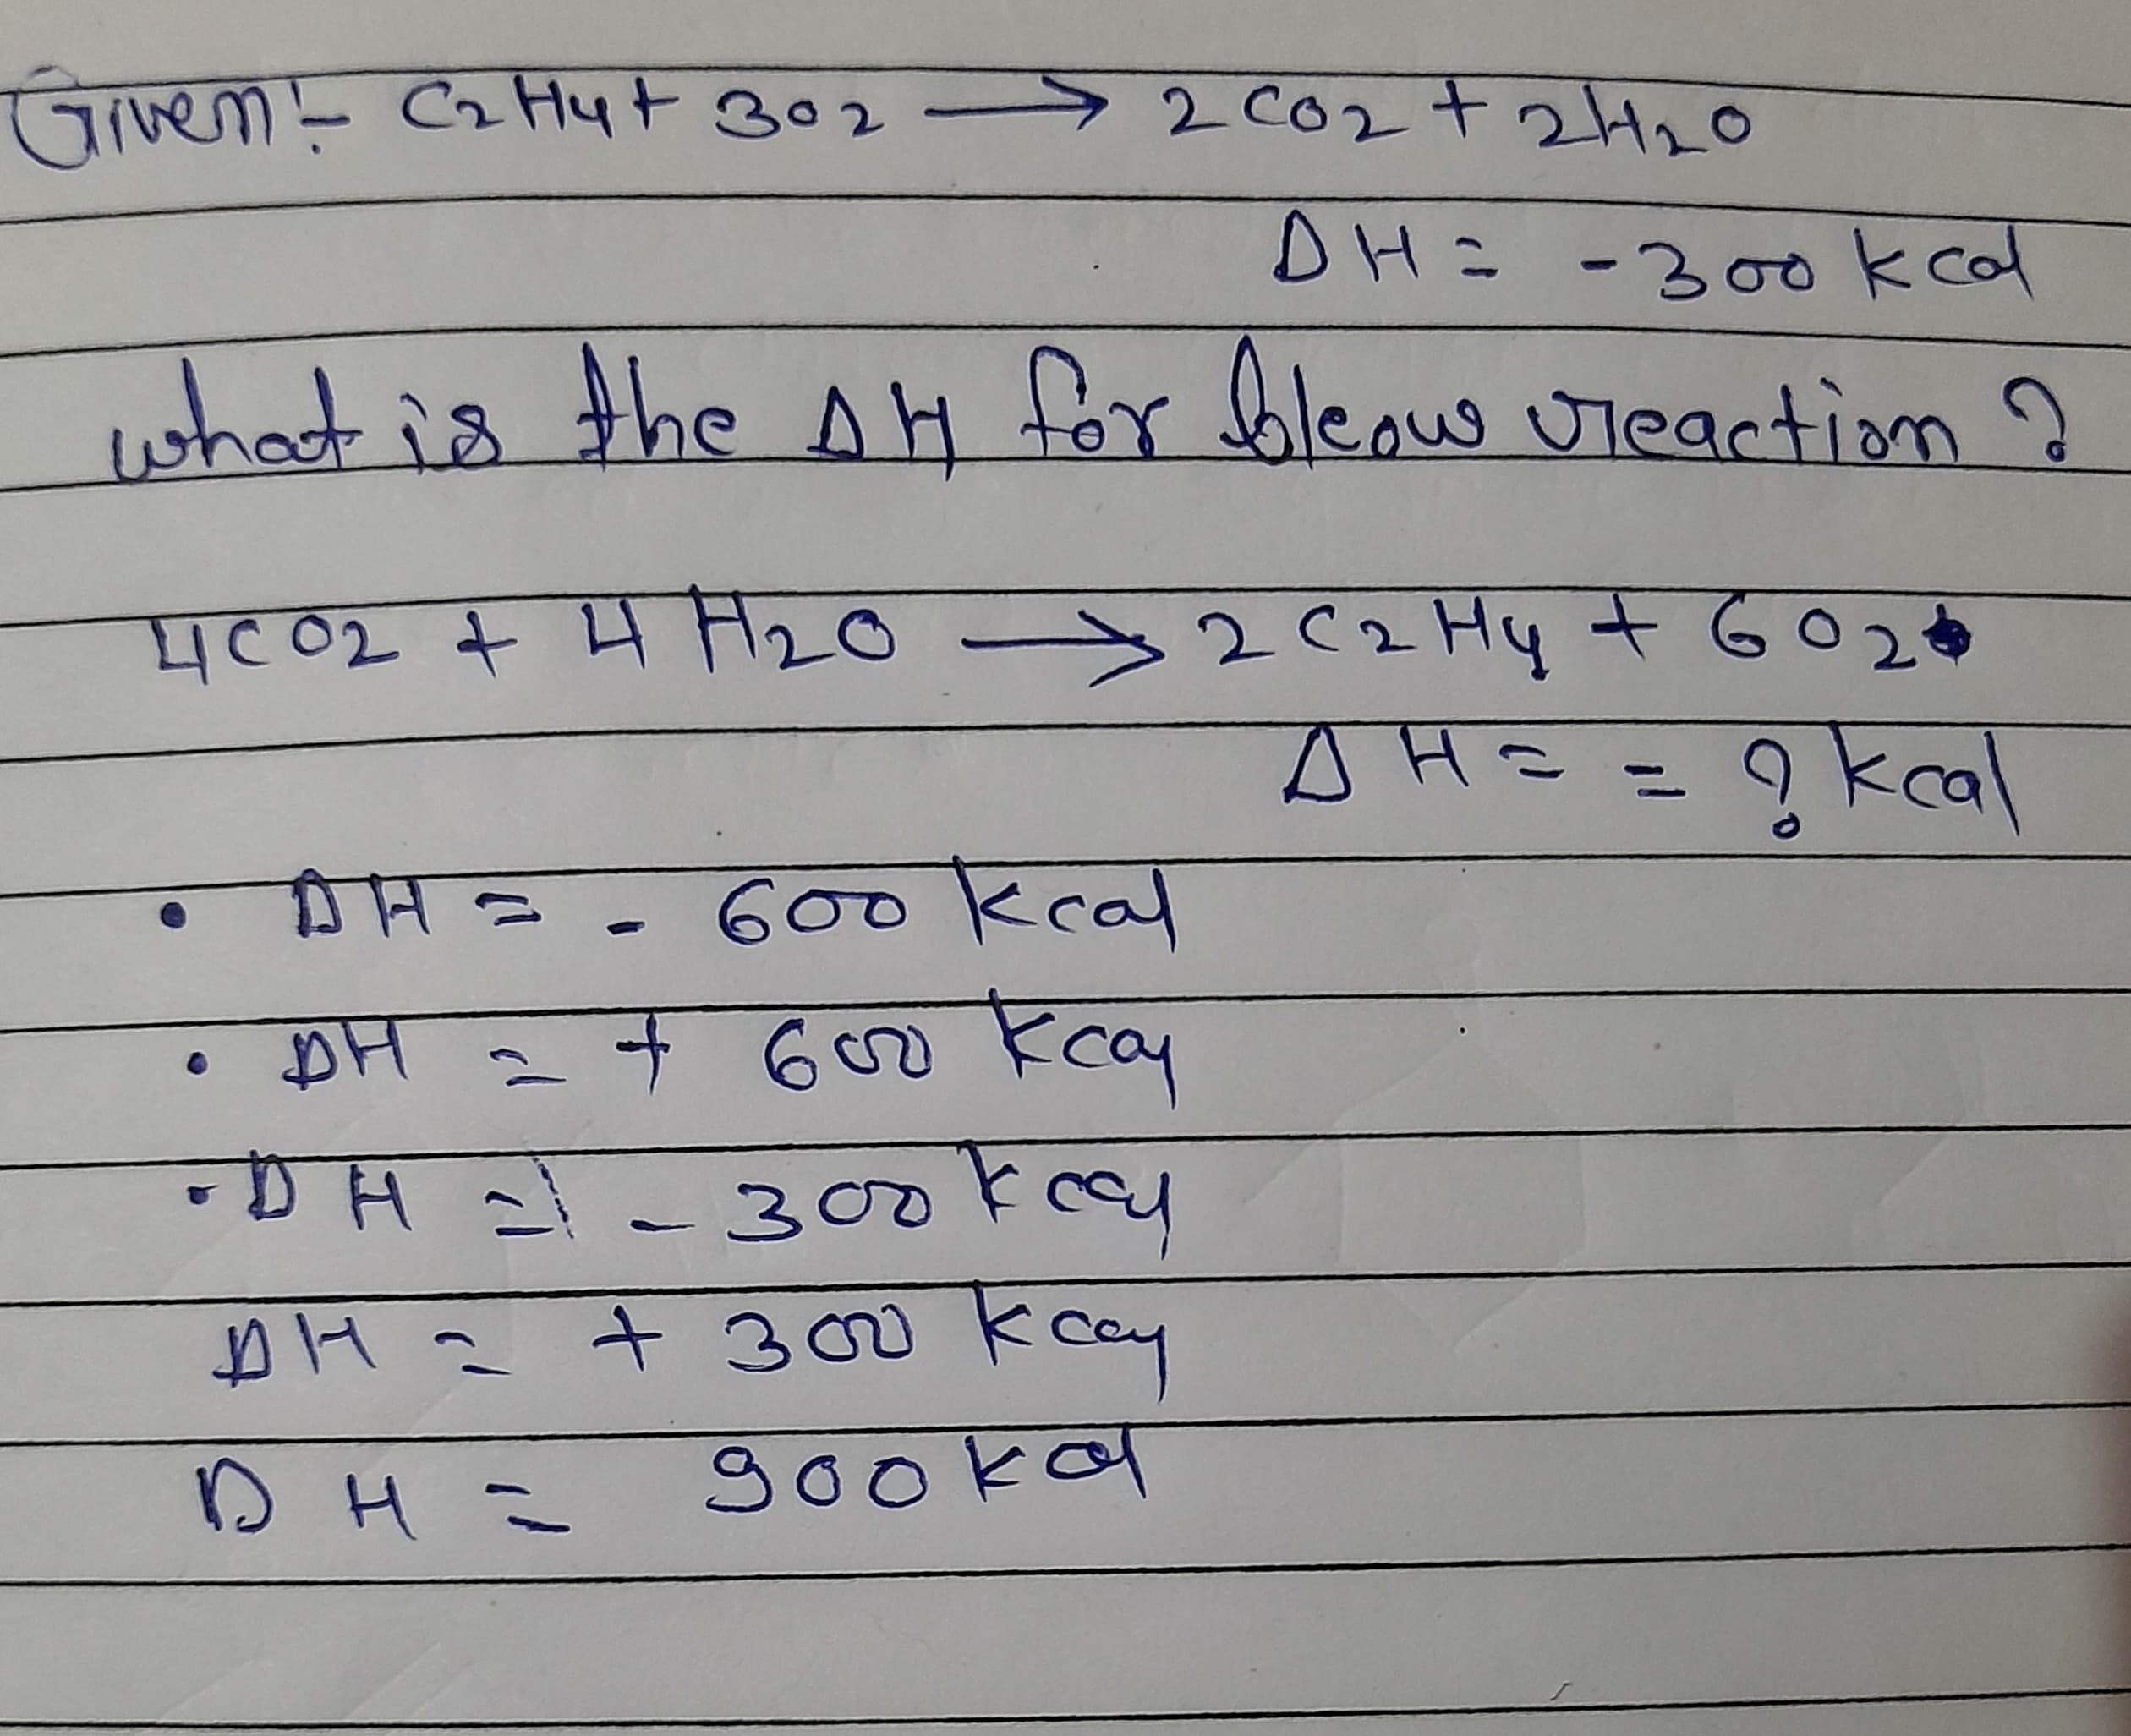 Given:- C2H4 + 3O2 → 2CO2 + 2H2O
ΔH = -300 kcal
what is the ΔH for bleow reaction ?
4CO2 + 4H2O → 2C2H4 + 6O2
ΔH = = ? kcal
• ΔH = - 600 kcal
• ΔH = + 600 kcal
• ΔH = - 300 kcal
ΔH = + 300 kcal
ΔH = 900 kcal